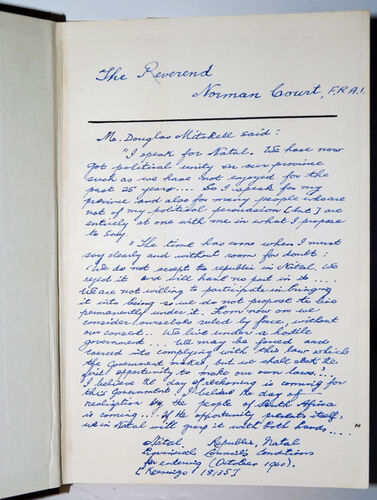 The Reverend
Norman Court, F.R.A.I.
Mr. Douglas Mitchell said:
"I speak for Natal. We have now
got political unity in our province
such as we have not enjoyed for the
past 25 years.... So I speak for my
province and also for many people who are
not of my political persuasion [but] are
entirely at one with me in what I propose
to say.
"The time has come when I must
say clearly and without room for doubt:
We do not accept the republic in Natal. We
reject it and will have no part in it....
We are not willing to participate in bringing
it into being so we do not propose to live
permanently under it. From now on we
consider ourselves ruled by force, without
our consent. We live under a hostile
government.... We may be forced and
coerced into complying with this law which
the Government makes, but we shall seek the
first opportunity to make our own laws....
I believe the day of reckoning is coming for
this Government. I believe the day of
by the people of South Africa
is coming... If the opportunity presents itself,
we in Natal will grasp it with both hands....
Natal Republic, Natal
Provincial Council's Conditions
for entering (October 1960).
[Keesings 18,35]